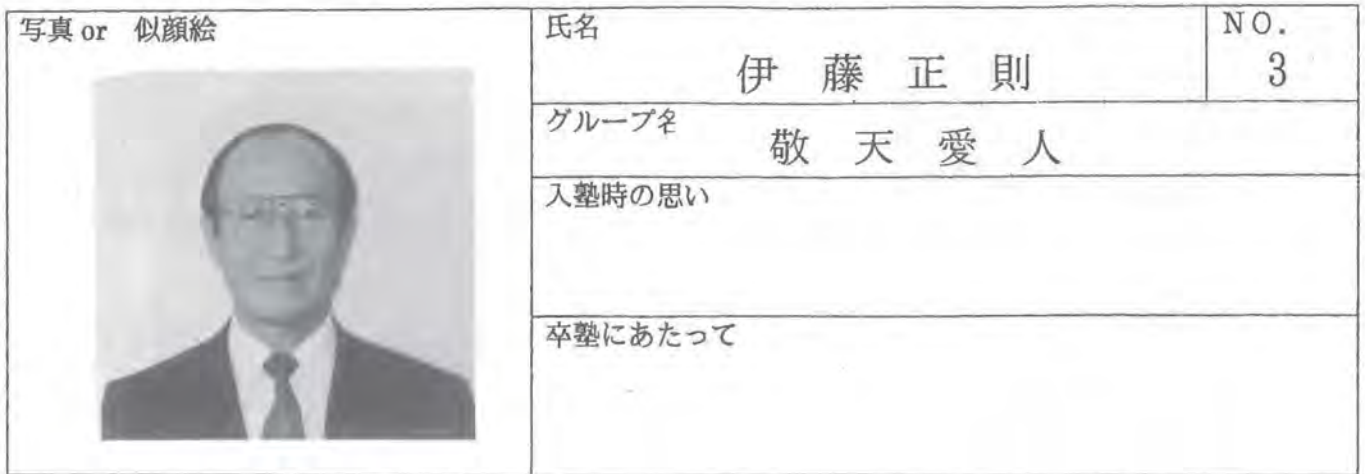 写真 or 似顔絵
氏名
伊藤正則
NO.
3
グループ名
敬天愛人
入塾時の思い
卒塾にあたって